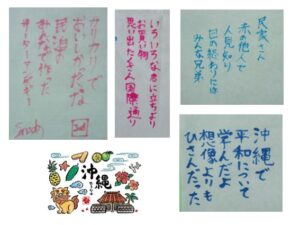 カリカリで
おいしかったな
民泊で
みんなが作った
サーターアンダギー
いろいろな店に立ちより
お買い物
思い出たくさん国際通り
民家さん
赤の他人で
人見知り
の終わりには
みんな兄弟
沖縄
沖縄で
平和について
学んだよ
想像よりも
ひさんだった